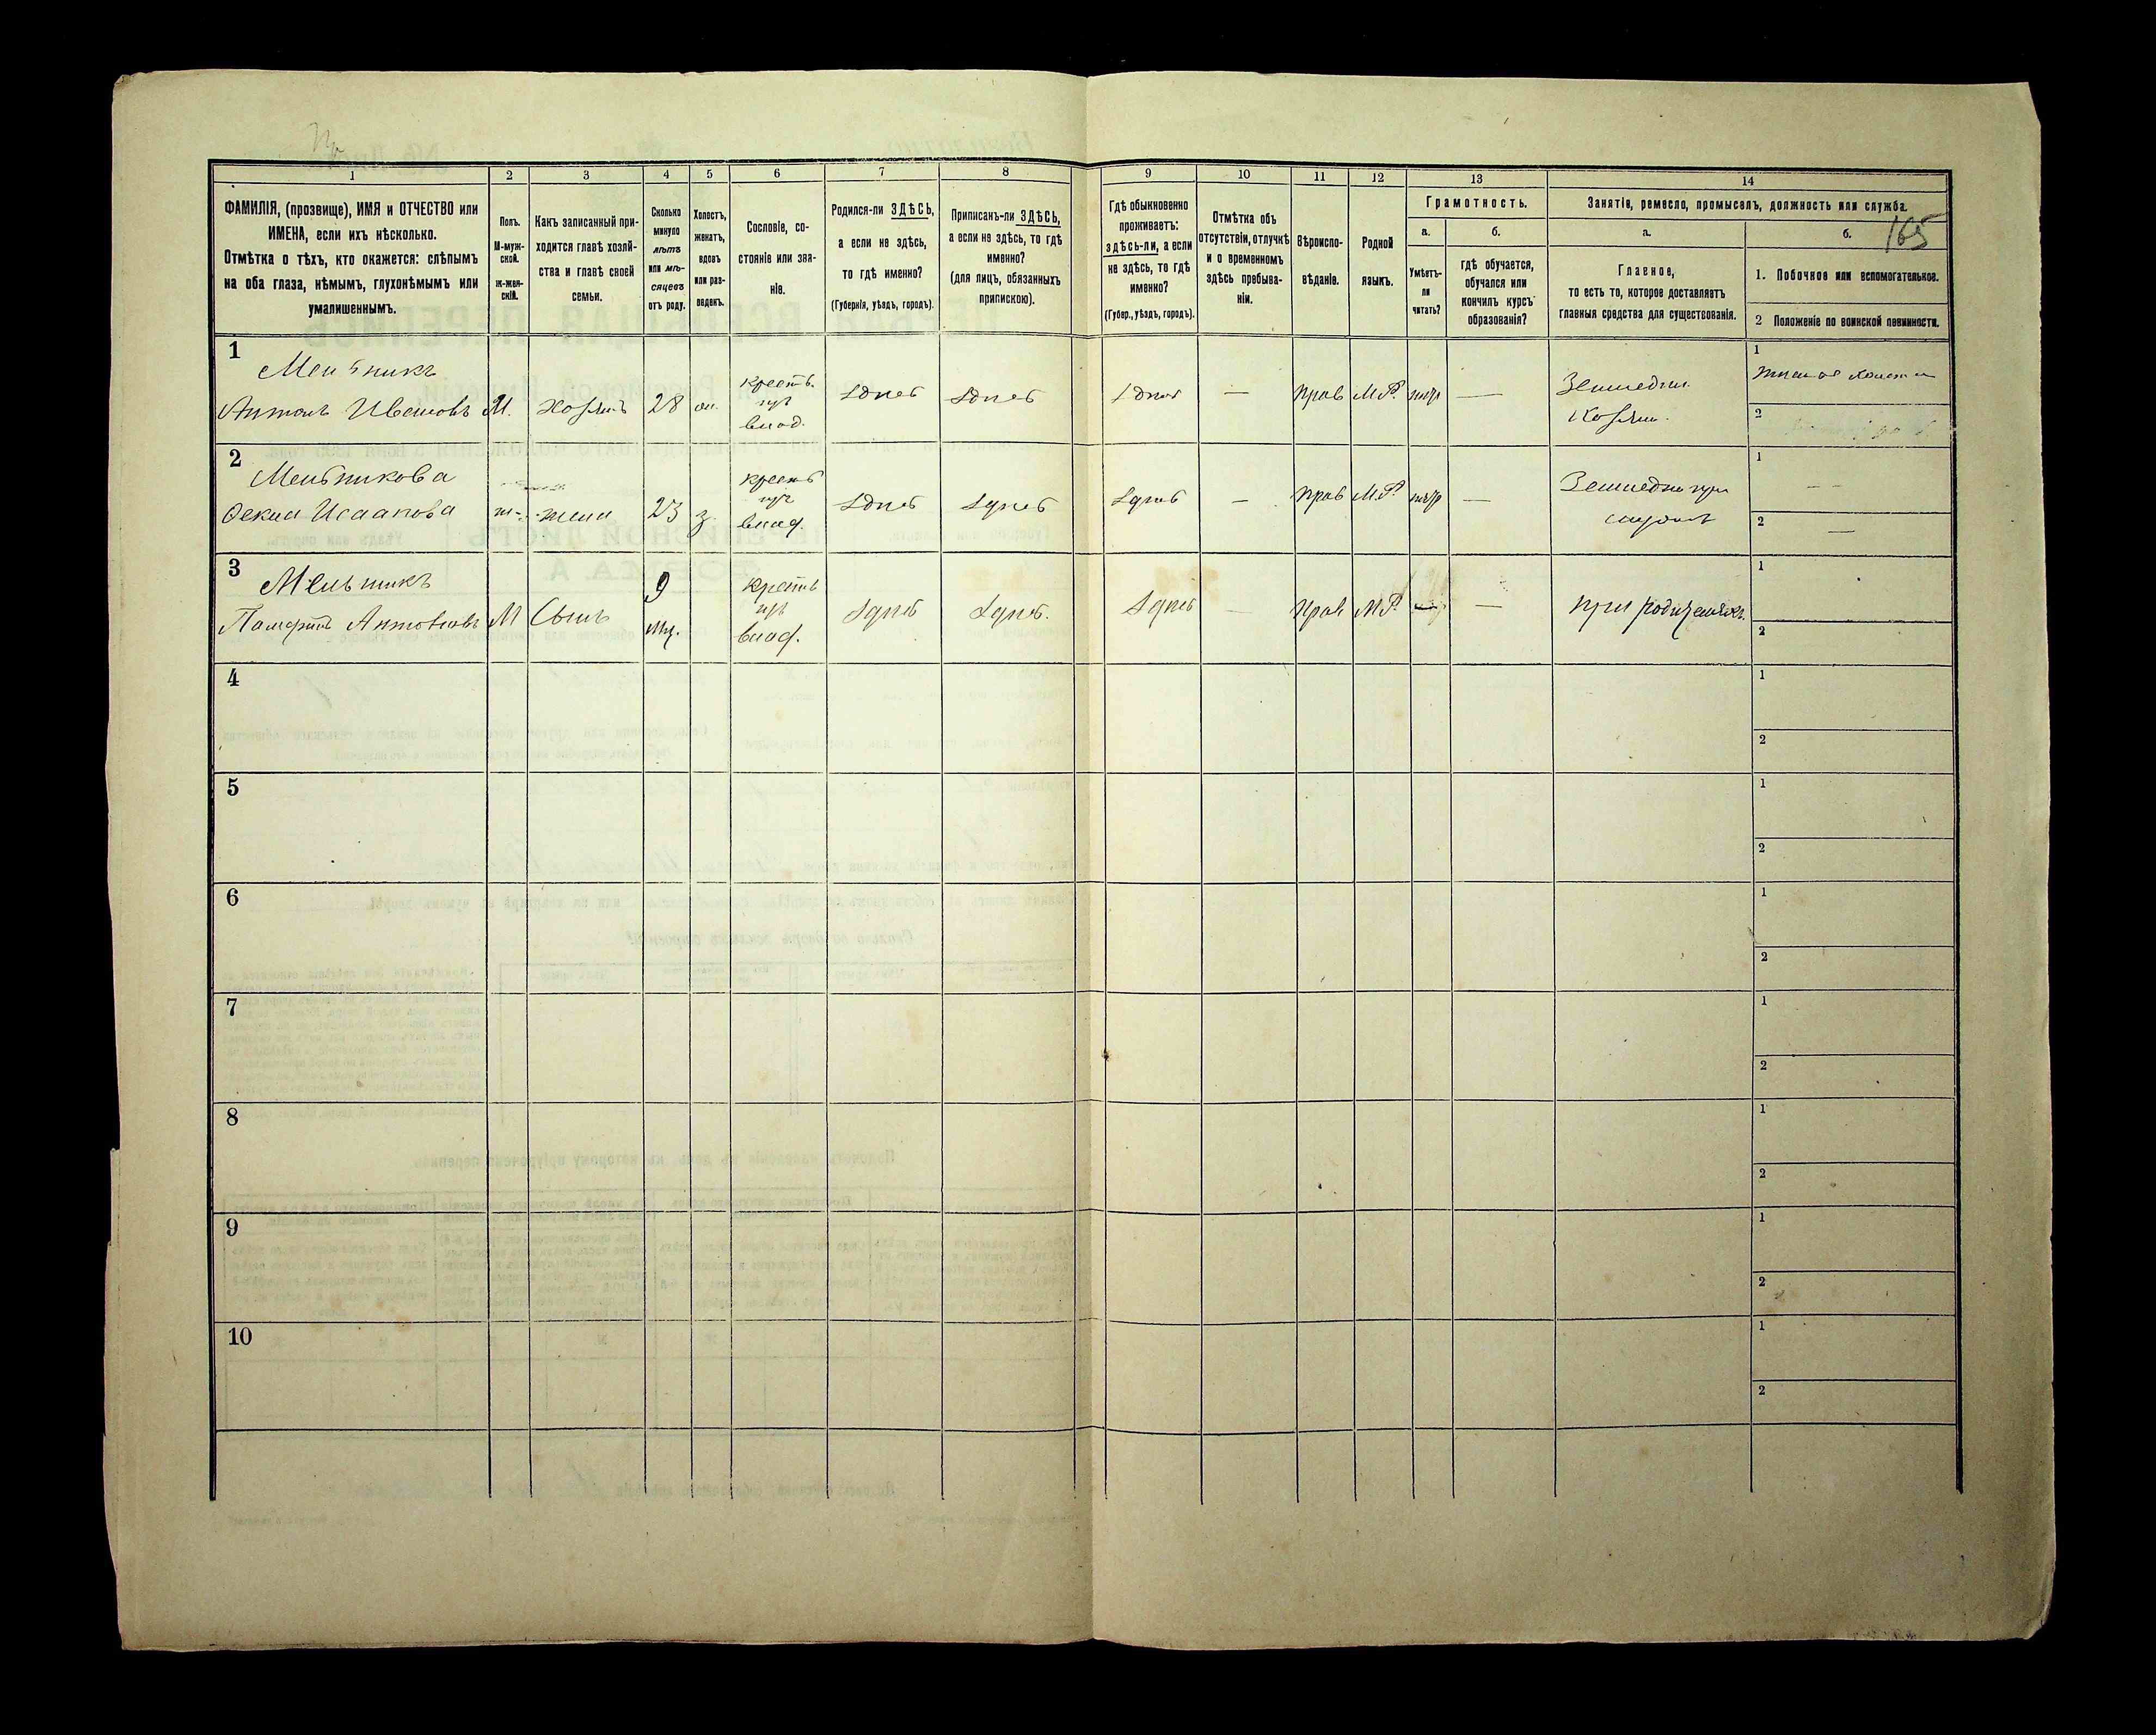 165
1
2
3
4
5
6
7
8
9
10
11
12
13
14
ФАМИЛІЯ, (прозвище), ИМЯ и ОТЧЕСТВО или
ИМЕНА, если ихъ нѣсколько.
Отмѣтка о тѣхъ, кто окажется: слѣпымъ
на оба глаза, нѣмымъ, глухонѣмымъ или
умалишеннымъ.
Полъ.
М-муж-
ской.
Ж-жен-
скій.
Какъ записанный при-
ходится главѣ хозяй-
ства и главѣ своей
семьи.
Сколько
минуло
лѣтъ
или мѣ-
сяцевъ
отъ роду.
Холостъ,
женатъ,
вдовъ
или раз-
веденъ.
Сословіе, со-
стояніе или зва-
ніе.
Родился-ли ЗДѢСЬ,
а если не здѣсь,
то гдѣ именно?
(Губернія, уѣздъ, городъ).
Приписанъ-ли ЗДѢСЬ,
а если не здѣсь, то гдѣ
именно?
(для лицъ, обязанныхъ
припискою).
Гдѣ обыкновенно
проживаетъ:
здѣсь-ли, а если
не здѣсь, то гдѣ
именно?
(Губер., уѣздъ, городъ).
Отмѣтка объ
отсутствіи, отлучкѣ
и о временномъ
здѣсь пребыва-
ніи.
Вѣроиспо-
вѣданіе.
Родной
языкъ.
Грамотность.
а.
б.
Умѣетъ-
ли
читать?
гдѣ обучается,
обучался или
кончилъ курсъ
образованія?
Занятіе, ремесло, промыселъ, должность или служба.
а.
б.
Главное,
то есть то, которое доставляетъ
главныя средства для существованія.
1. Побочное или вспомогательное.
2 Положеніе по воинской повинности.
1
Мельникъ
Антонъ Ивановъ
М.
хозяинъ
28
жн.
крестъ.
изъ
влад.
здѣсь
здѣсь
здѣсь
—
прав
М.Р.
—
Земледѣл.
хозяин.
1
2
2
Мельникова
Оекла Исаакова
ж
жена
23
з.
крестъ
изъ
влад.
здѣсь
здѣсь
здѣсь
—
прав
М.Р.
—
Земледѣл при
мужѣ
1
— —
2
—
3
Мельникъ
Антоновъ
М
Сынъ
9
мц.
крестъ
изъ
влад.
здѣсь
здѣсь.
здѣсь
—
Прав
М.Р.
—
при родителяхъ.
1
2
4
1
2
5
1
2
6
1
2
7
1
2
8
1
2
9
1
2
10
1
2